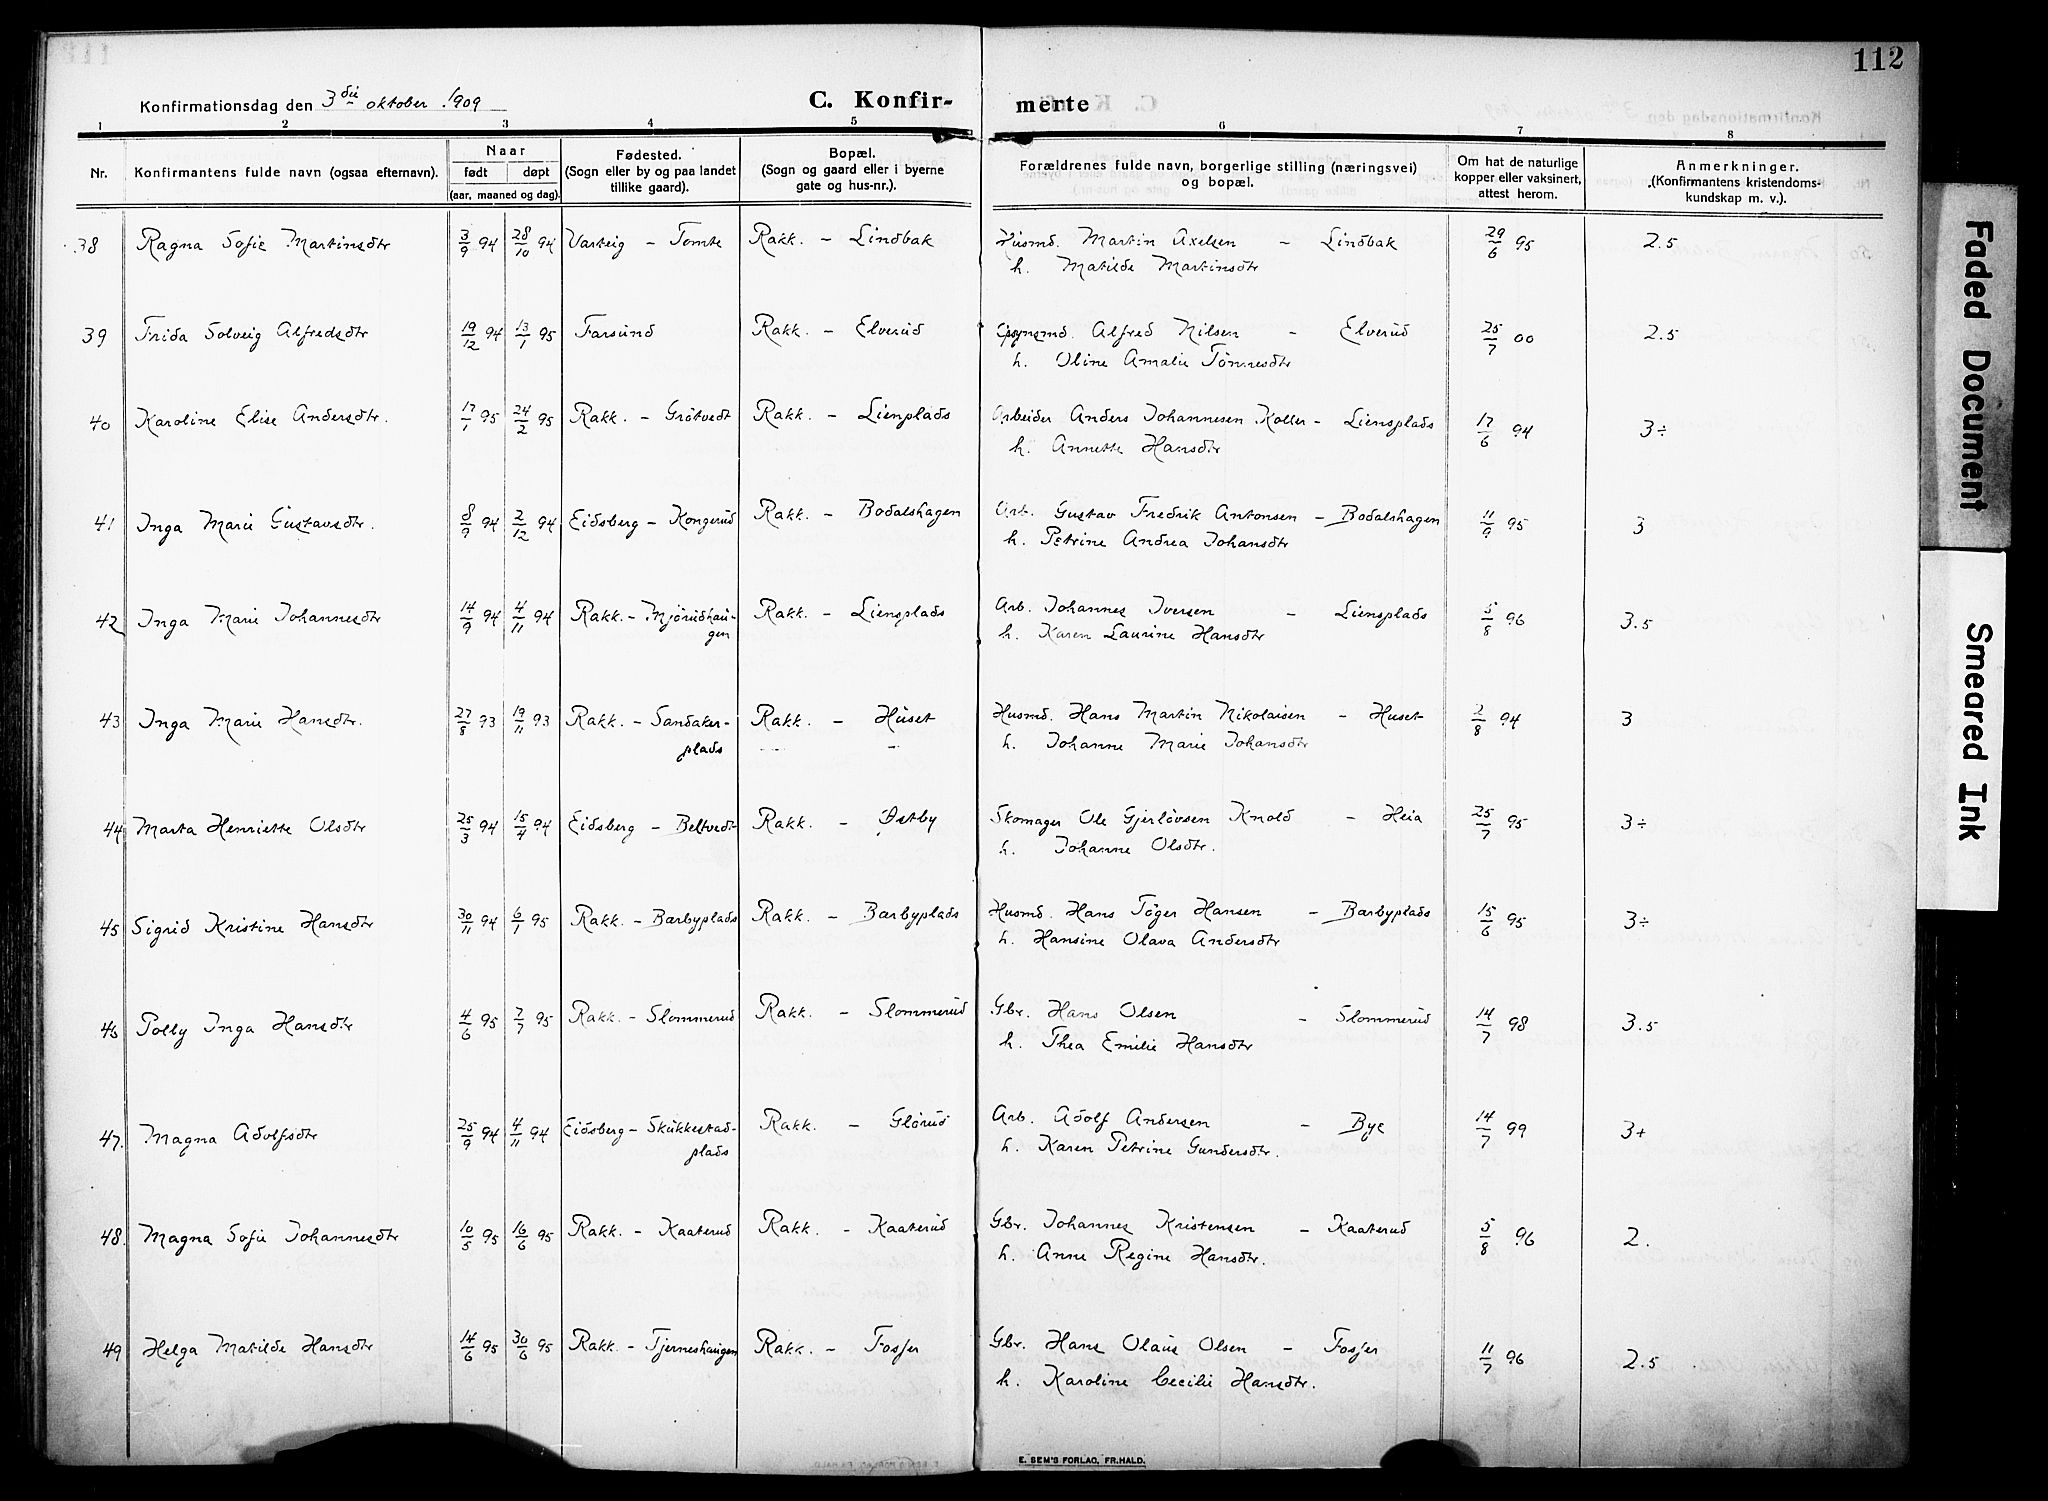 112
Konfirmationsdag den 3die oktober 1909
C. Konfirmerte
1 2 3 4 5 6 7 8
Nr. Konfirmantens fulde navn (ogsaa efternavn). Naar født døpt (aar, maaned og dag). Fødested. (Sogn eller by og paa landet tillike gaard). Bopæl. (Sogn og gaard eller i byerne gate og hus-nr.). Forældrenes fulde navn, borgerlige stilling (næringsvei) og bopæl. Om hat de naturlige kopper eller vaksinert, attest herom. Anmerkninger. (Konfirmantens kristendomskundskap m. v.).
38 Ragna Sofie Martinsdtr 3/9 94 28/10 94 Varteig - Tomte Rakk. - Lindbak Husmd. Martin Axelsen - Lindbak 29/6 95 2.5
h. Matilde Martinsdtr
39 Frida Solveig Alfredsdtr 19/12 94 13/1 95 Farsund Rakk. - Elverud Opsynsmd. Alfred Nilsen - Elverud 25/7 00 2.5
h. Oline Amalie Tønnesdtr
40 Karoline Elise Andersdtr. 17/1 95 24/2 95 Rakk. - Grötvedt Rakk. - Lienplads Arbeider Anders Johannesen Koller - Liensplads 17/6 94 3÷
h. Annette Hansdtr
41 Inga Marie Gustavsdtr. 8/9 94 2/12 94 Eidsberg - Kongerud Rakk. - Bodalshagen Arb. Gustav Fredrik Antonsen - Bodalshagen 11/9 95 3
h. Petrine Andrea Johansdtr
42 Inga Marie Johannesdtr 14/9 94 4/11 94 Rakk. - Mjörudhaugen Rakk. - Liensplads Arb. Johannes Iversen - Liensplads 5/8 96 3.5
h. Karen Laurine Hansdtr
43 Inga Marie Hansdtr. 27/8 93 19/11 93 Rakk. - Sandakerplads Rakk. - Huset Husmd. Hans Martin Nikolaisen - Huset 2/8 94 3
h. Johanne Marie Johansdtr
44 Marta Henriette Olsdtr 25/3 94 15/4 94 Eidsberg - Beltvedt Rakk. - Østby Skomager Ole Gjerlövsen Knold - Heia 25/7 95 3÷
h. Johanne Olsdtr.
45 Sigrid Kristine Hansdtr 30/11 94 6/1 95 Rakk. - Barbyplads Rakk. - Barbyplads Husmd. Hans Töger Hansen - Barbyplads 15/6 95 3÷
h. Hansine Olava Andersdtr
46 Polly Inga Hansdtr 4/6 95 7/7 95 Rakk. - Slommerud Rakk. - Slommerud Gbr. Hans Olsen - Slommerud 14/7 98 3.5
h. Thea Emilie Hansdtr
47. Magna Adolfsdtr 25/9 94 4/11 94 Eidsberg - Skukkestadplads Rakk. - Glörud Arb. Adolf Andersen - Bye 14/7 99 3+
h. Karen Petrine Gundersdtr.
48. Magna Sofie Johannesdtr 10/5 95 16/6 95 Rakk. - Kaaterud Rakk. - Kaaterud Gbr. Johannes Kristensen - Kaaterud 5/8 96 2.
h. Anne Regine Hansdtr.
49 Helga Matilde Hansdtr 14/6 95 30/6 95 Rakk. - Tjerneshaugen Rakk. - Fosser Gbr. Hans Olaus Olsen - Fosser 11/7 96 2.5
h. Karoline Cecilie Hansdtr.
E. SEM'S FORLAG, FR.HALD.
Faded Document
Smeared Ink